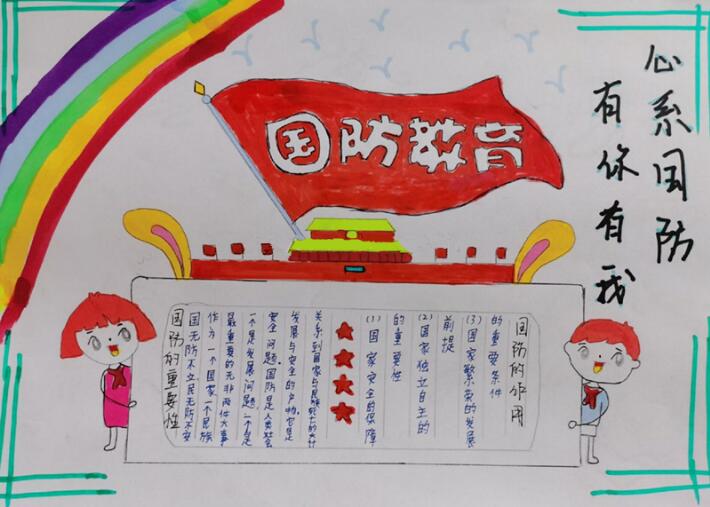 心系国防
有你有我
国防教育
国防的重要性
国无防不立民无防不安
作为一个国家一个民族
最重要的无非两件大事
一个是发展问题,一个是
安全问题.国防是人类社会
发展与安全的产物,它是
关系到国家与民族
(1)国家安全的保障
的重要性
(2)国家独立自主的
前提
(3)国家繁荣的发展
的重要条件
国防的作用